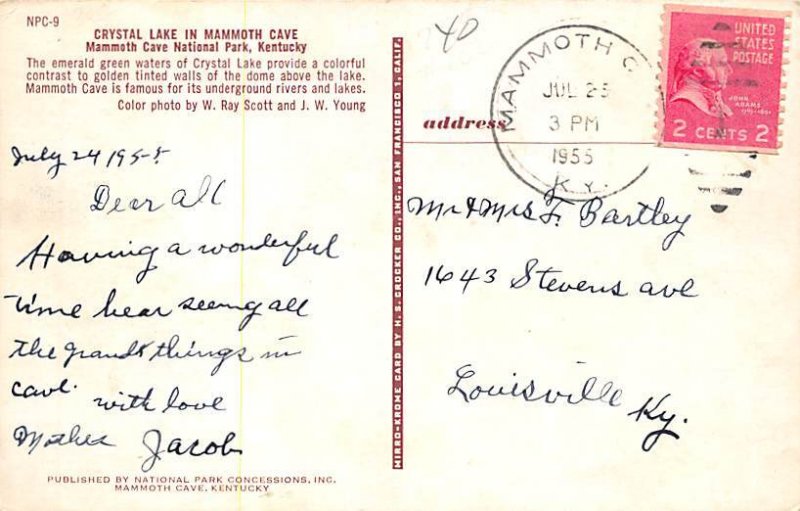 NPC-9
CRYSTAL LAKE IN MAMMOTH CAVE
Mammoth Cave National Park, Kentucky
The emerald green waters of Crystal Lake provide a colorful
contrast to golden tinted walls of the dome above the lake.
Mammoth Cave is famous for its underground rivers and lakes.
Color photo by W. Ray Scott and J. W. Young
July 24 1955
Dear all
Having a wonderful
time hear seeing all
the grand things in
cave.
with love
Mother Jacob
PUBLISHED BY NATIONAL PARK CONCESSIONS, INC.
MAMMOTH CAVE, KENTUCKY
MIRRO-KROME CARD BY H. S. CROCKER CO., INC., SAN FRANCISCO 1, CALIF.
40
address
MAMMOTH C
JUL 25
3 PM
1955
KY.
UNITED
STATES
POSTAGE
JOHN
ADAMS
2 CENTS 2
Mr & Mrs F. Bartley
1643 Stevens ave
Louisville Ky.